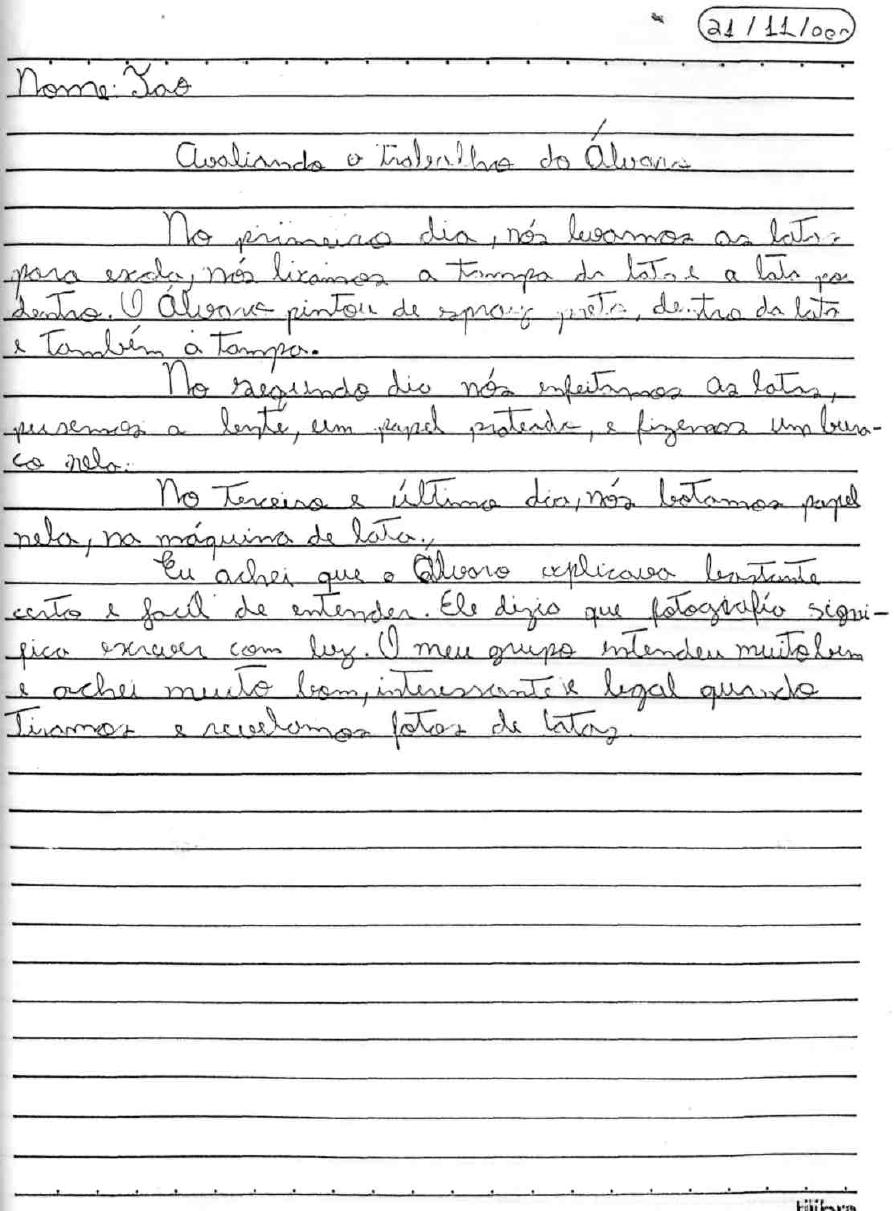 21/11/000
Nome: Iao
Avaliando o trabalho do Álvaro
No primeiro dia, nós levamos as latas
para escola, nós lixamos a tampa da lata e a lata por
dentro. O Álvaro pintou de spray preto, dentro da lata
e também a tampa.
No segundo dia nós enfeitamos as latas,
pusemos a lente, um papel prateado, e fizemos um bura-
co nela.
No terceiro e último dia, nós botamos papel
nela, na máquina de lata.
Eu achei que o Álvaro explicava bastante
certo e facil de entender. Ele dizia que fotografia signi-
fica escrever com luz. O meu grupo intendeu muito bem
e achei muito bom, interessante e legal quando
tiramos e revelamos fotos de latas.
tilibra